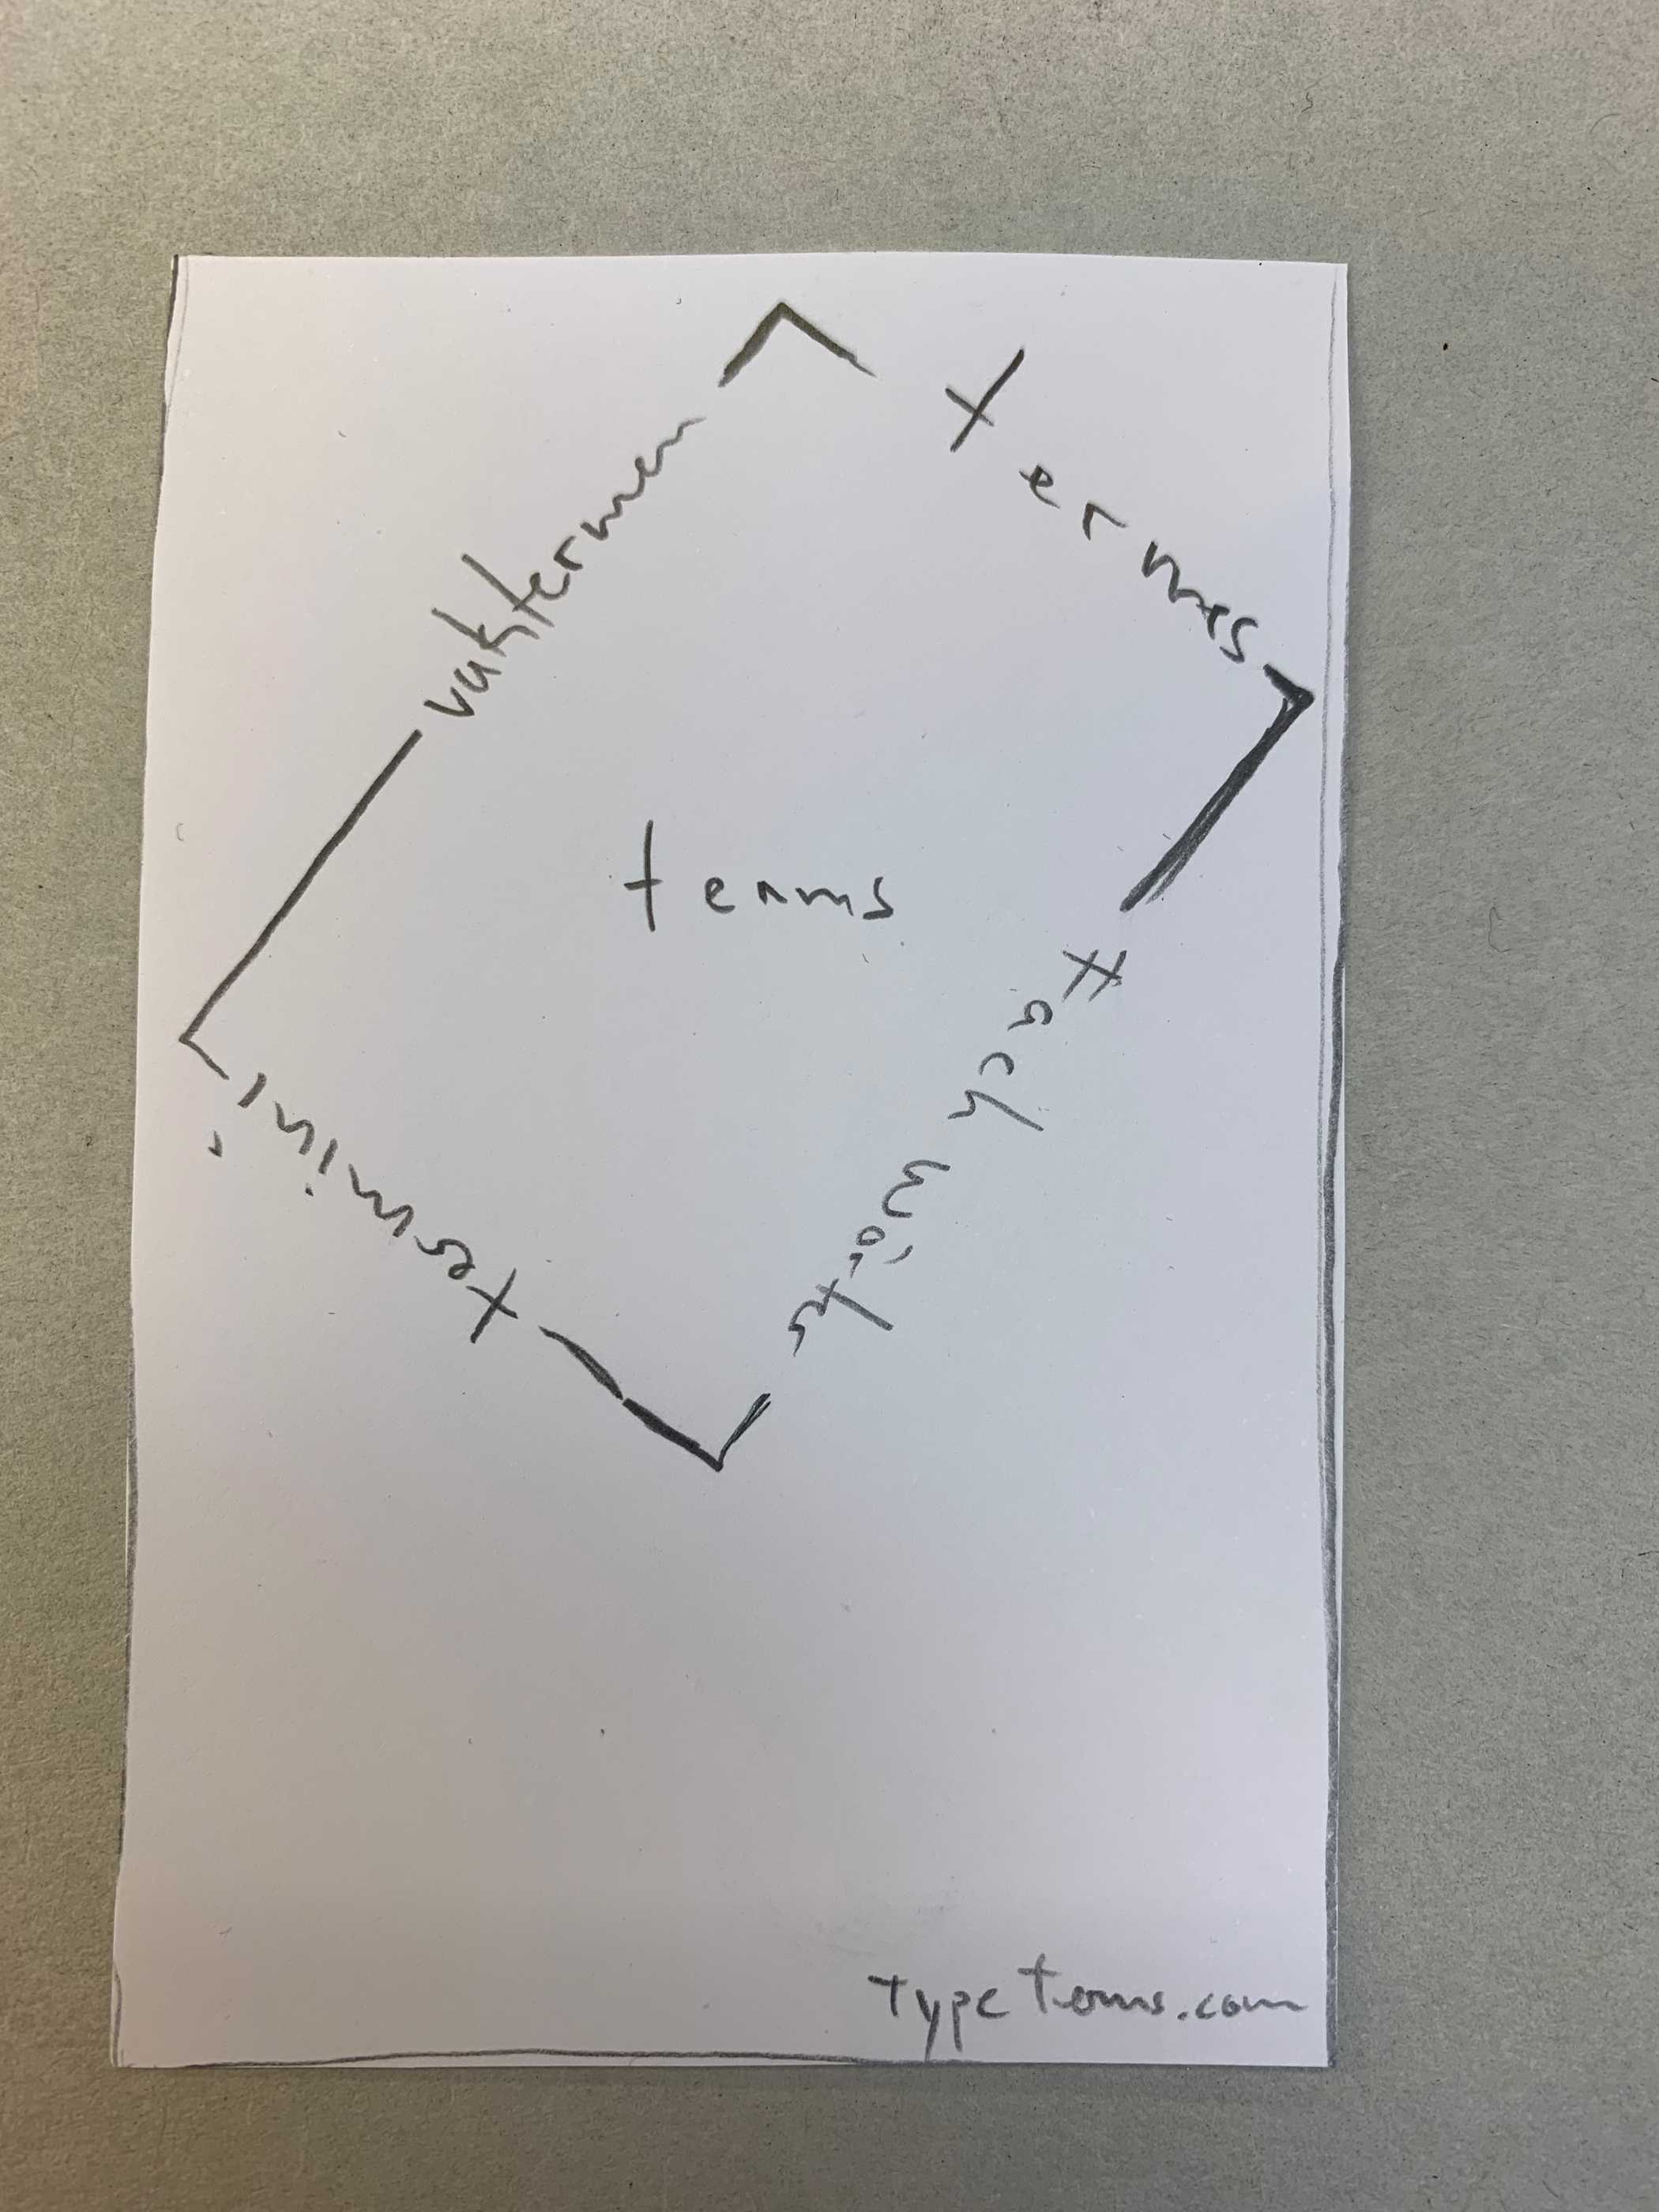 termes
vaktermen
terms
fachwörter
termini
typeterms.com